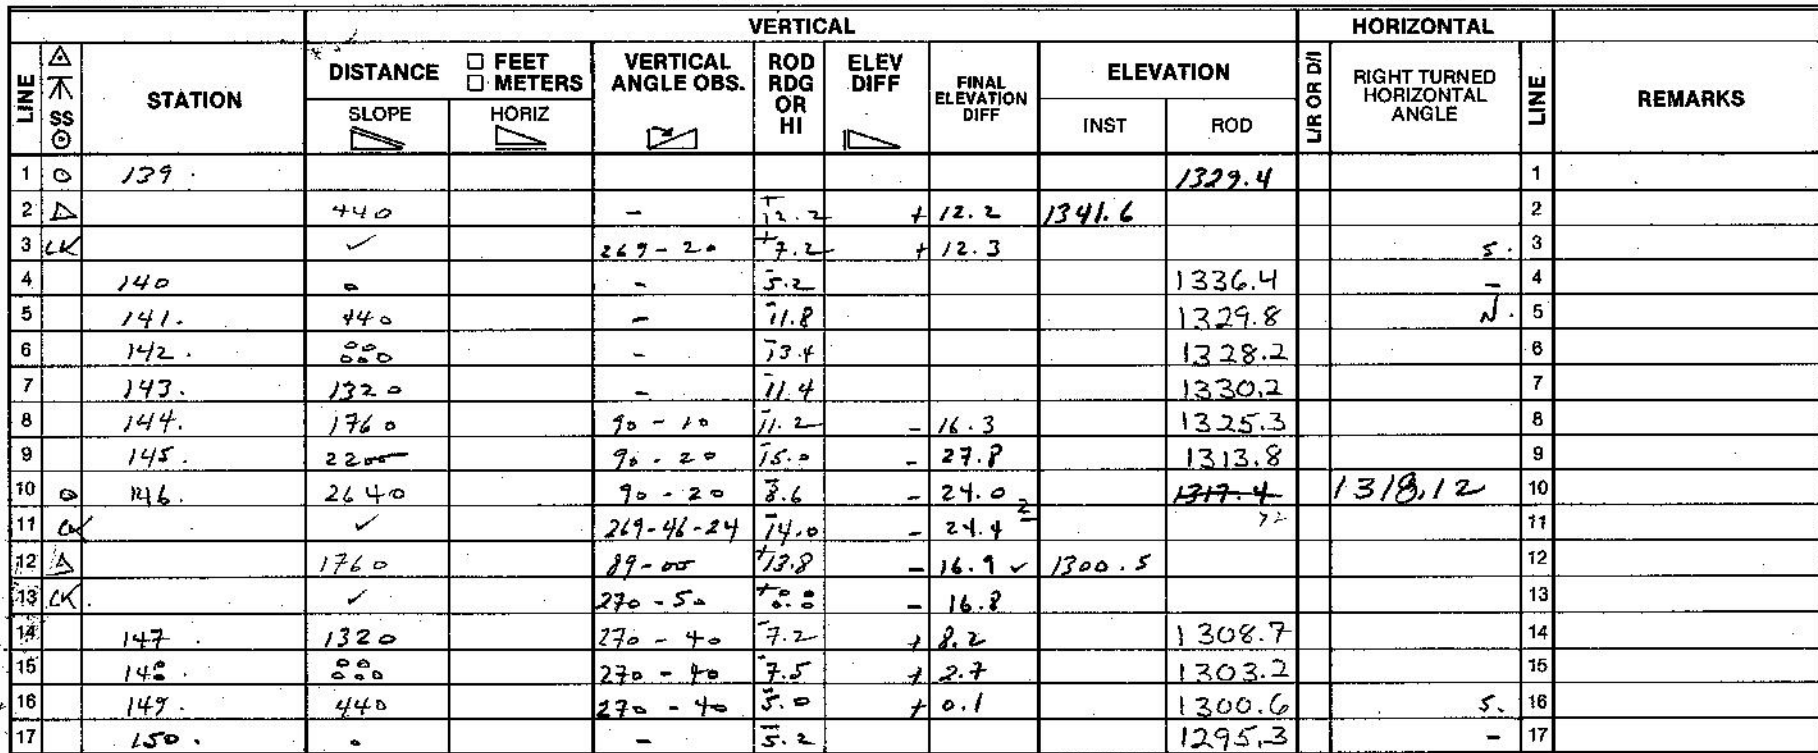 VERTICAL HORIZONTAL
LINE SS STATION DISTANCE □ FEET □ METERS VERTICAL ANGLE OBS. ROD RDG OR HI ELEV DIFF FINAL ELEVATION DIFF ELEVATION L/R OR D/I RIGHT TURNED HORIZONTAL ANGLE LINE REMARKS
SLOPE HORIZ INST ROD
1 139. 1329.4 1
2 440 - +12.2 + 12.2 1341.6 2
3 CK ✓ 269-20 +7.2 + 12.3 S. 3
4 140 0 - -5.2 1336.4 - 4
5 141. 440 - -11.8 1329.8 N. 5
6 142. - -13.4 1328.2 6
7 143. 1320 - -11.4 1330.2 7
8 144. 1760 90-10 -11.2 - 16.3 1325.3 8
9 145. 2200 90-20 -15.0 - 27.8 1313.8 9
10 146. 2640 90-20 -8.6 - 24.0 1317.4 1318.12 10
11 CK ✓ 269-46-24 -14.0 - 24.4 2 11
12 1760 89-00 +13.8 - 16.9 ✓ 1300.5 12
13 CK. ✓ 270-50 - 16.8 13
14 147. 1320 270-40 -7.2 + 8.2 1308.7 14
15 270-40 -7.5 + 2.7 1303.2 15
16 149. 440 270-40 -5.0 + 0.1 1300.6 S. 16
17 150. 0 - -5.2 1295.3 - 17